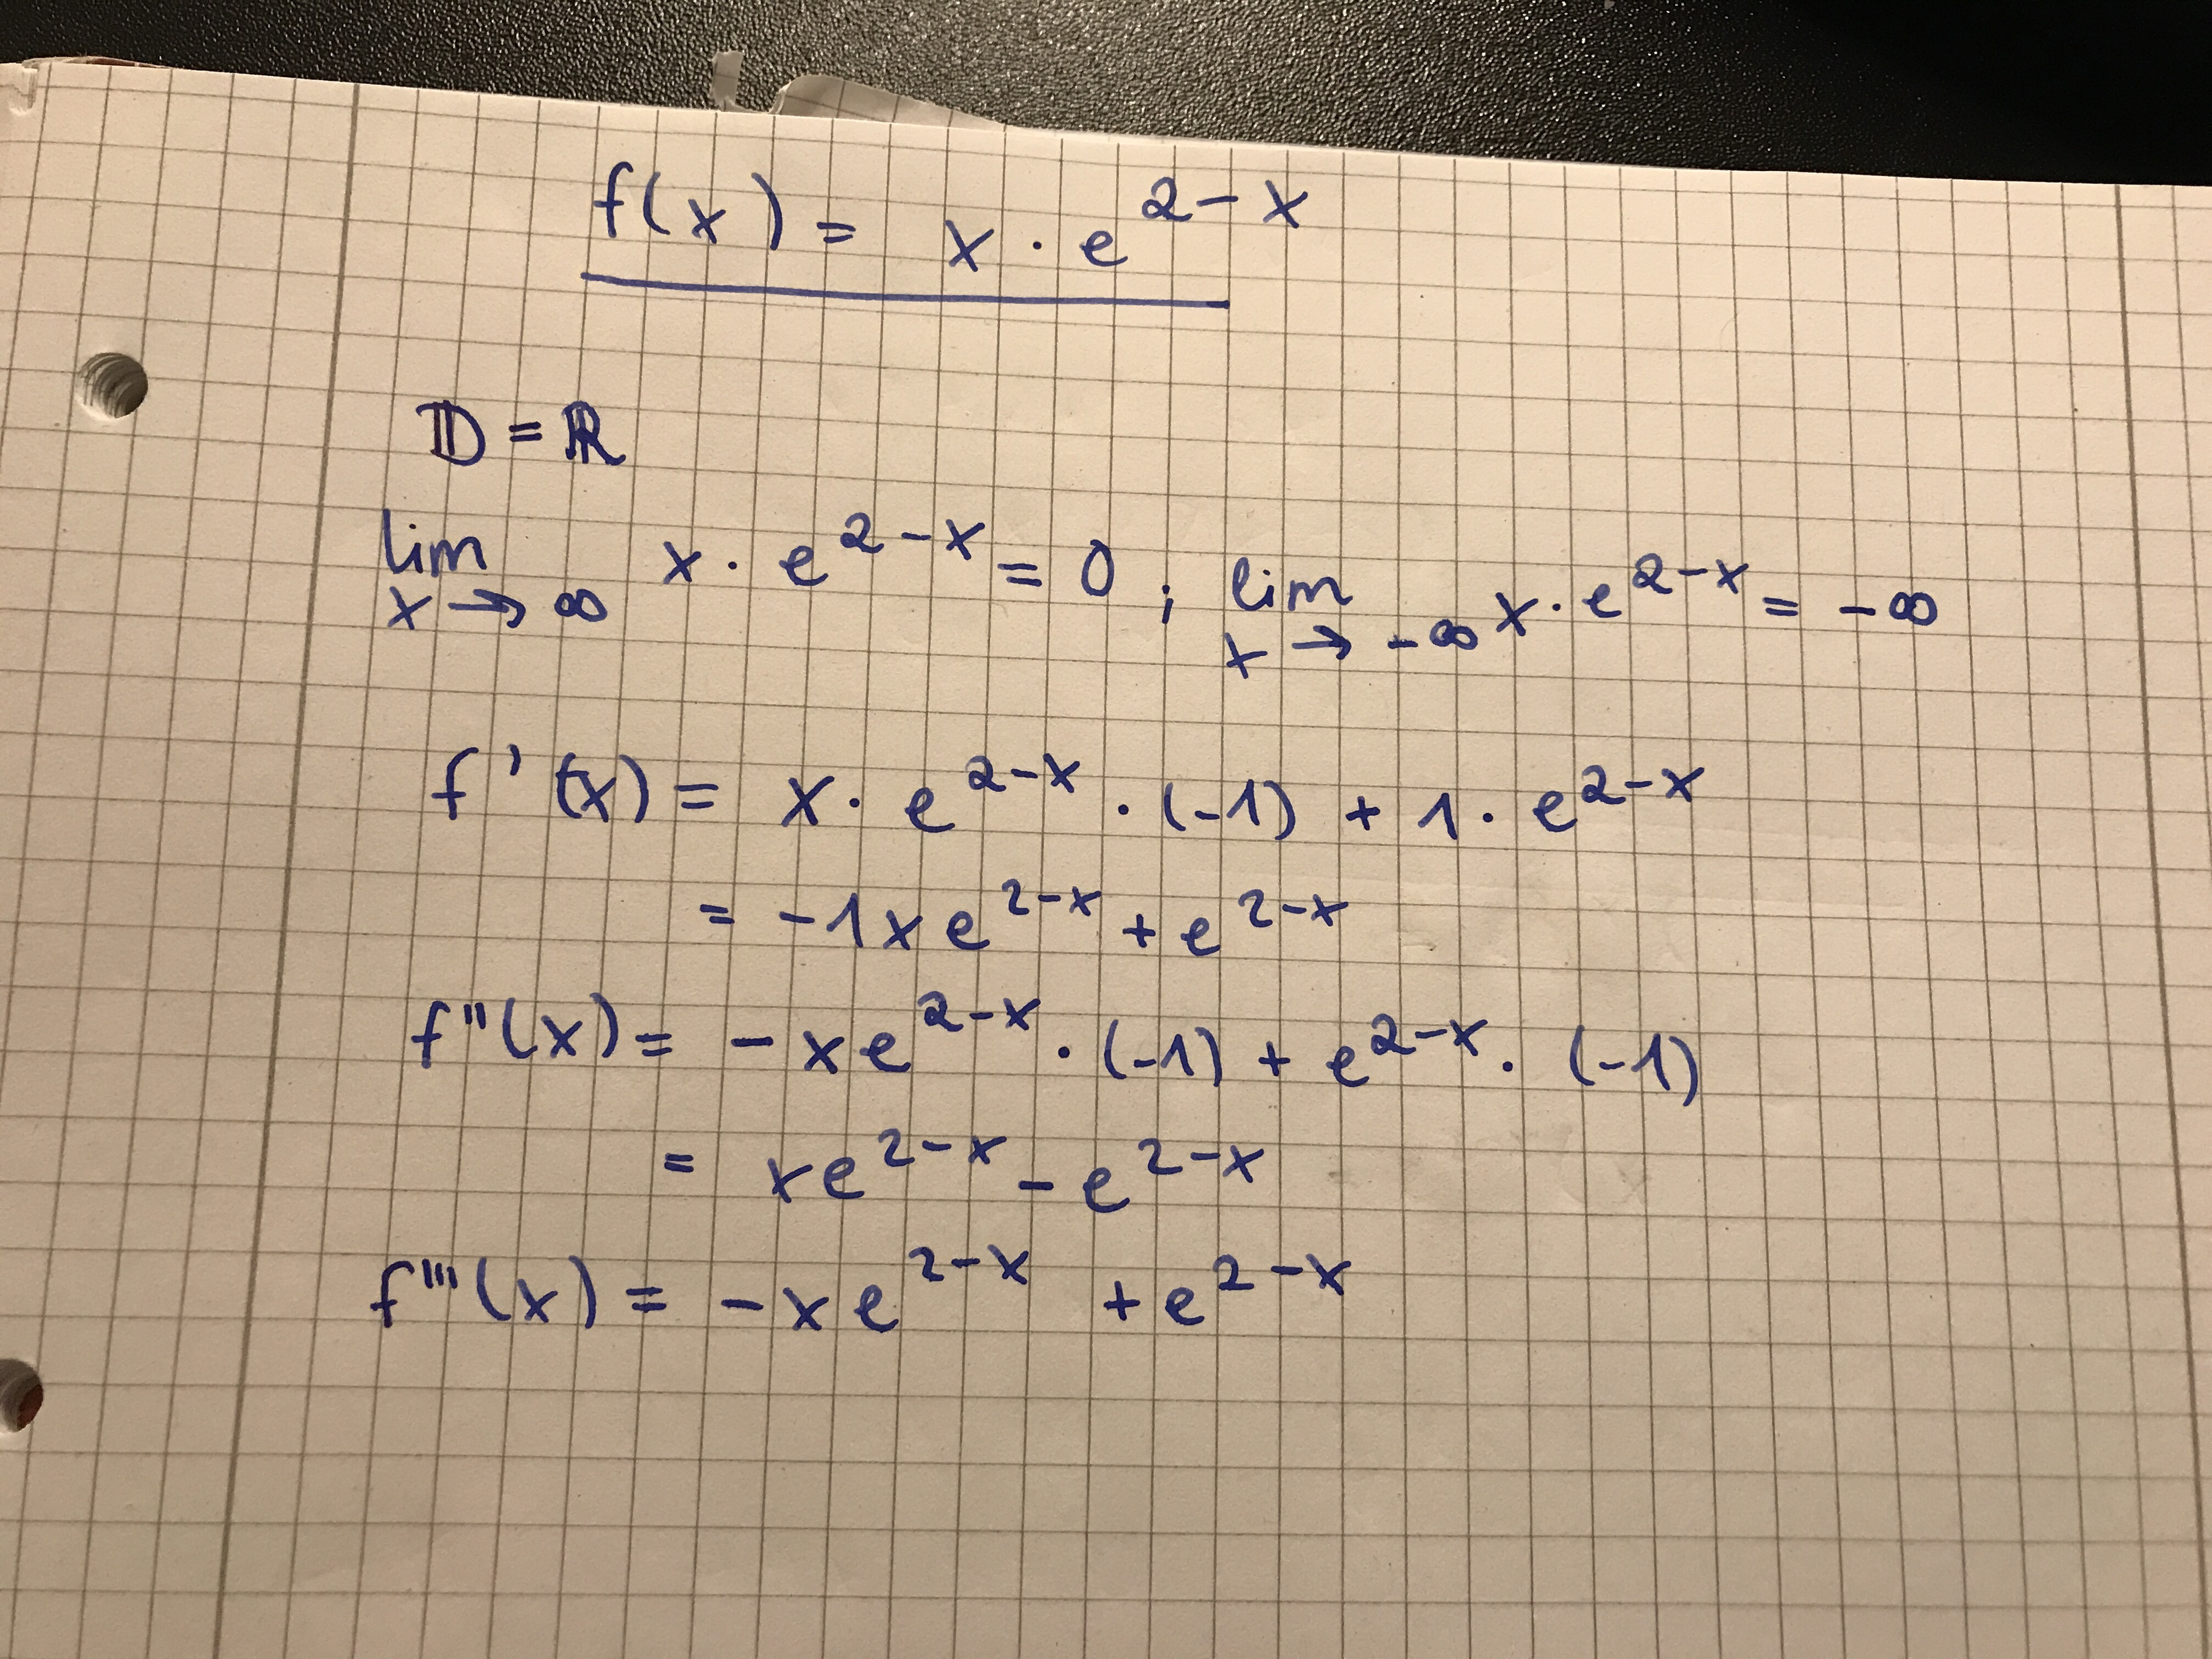 f(x) = x · e^{2-x}
𝔻 = ℝ
lim_{x→∞} x · e^{2-x} = 0 ; lim_{x→-∞} x · e^{2-x} = -∞
f'(x) = x · e^{2-x} · (-1) + 1 · e^{2-x}
= -1xe^{2-x} + e^{2-x}
f''(x) = -xe^{2-x} · (-1) + e^{2-x} · (-1)
= xe^{2-x} - e^{2-x}
f'''(x) = -xe^{2-x} + e^{2-x}